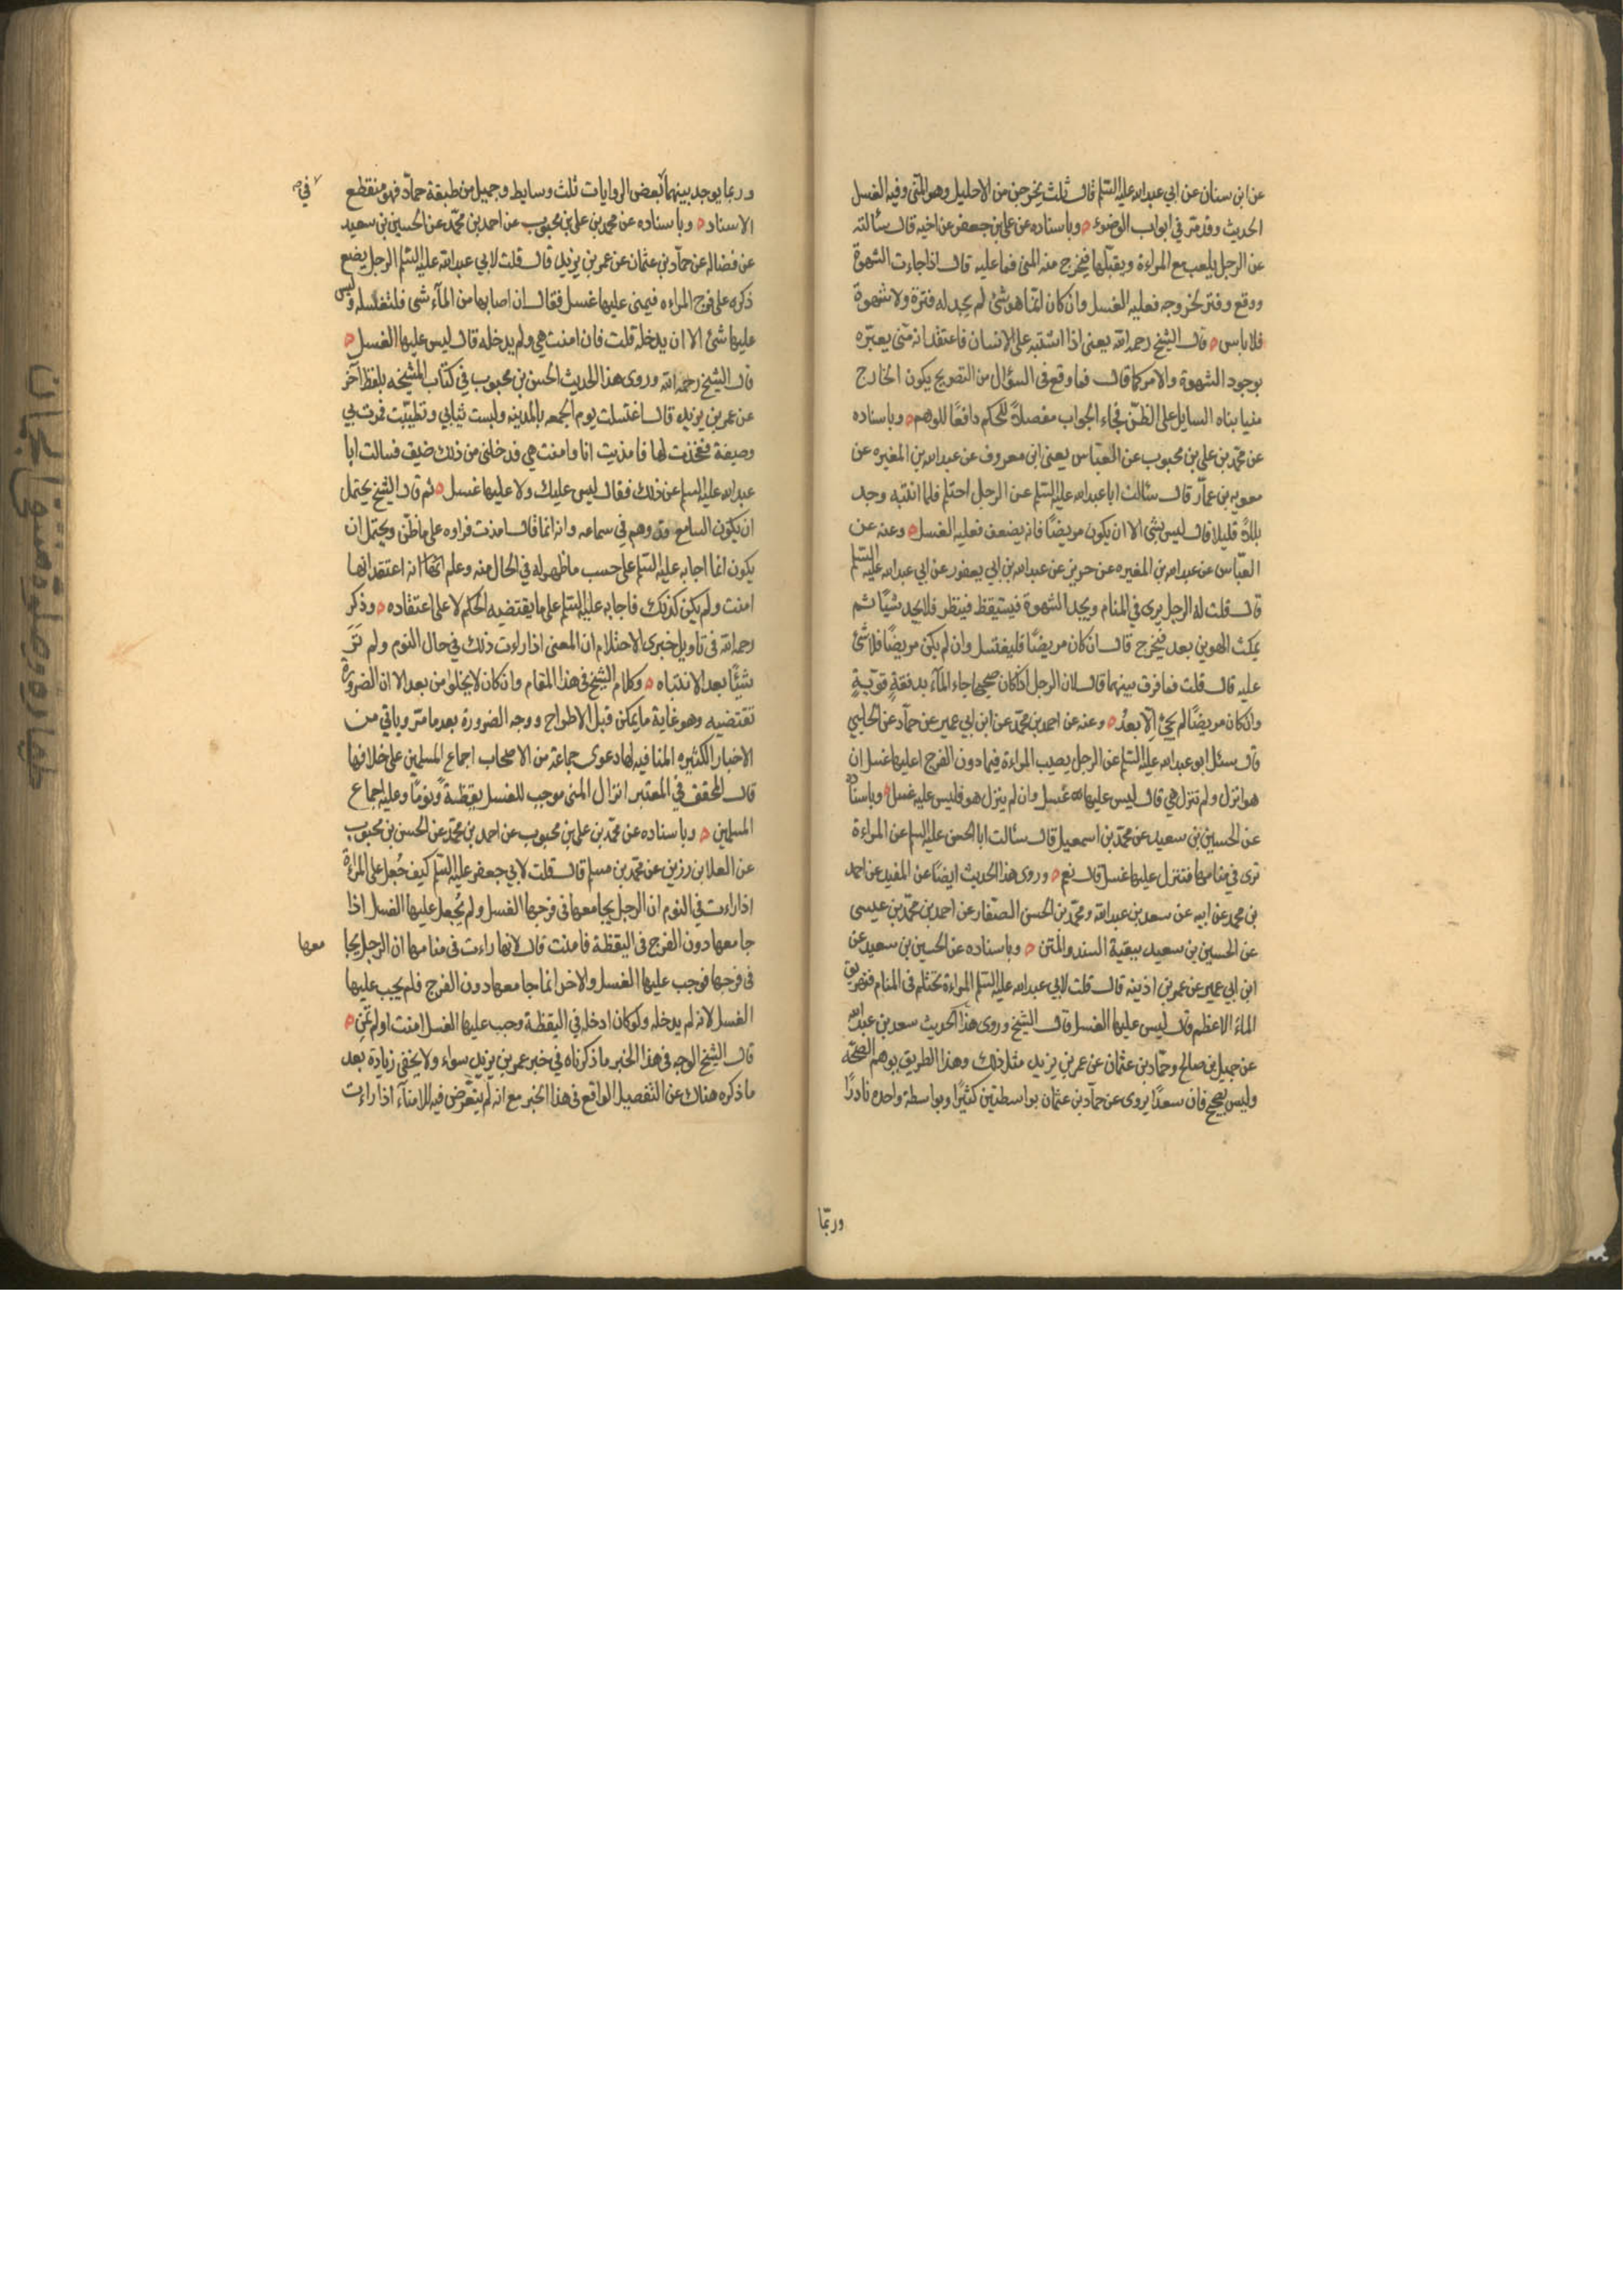 عن ابن سنان عن ابي عبدالله عليه السلم قال ثلث يخرجن من الاحليل وهو المنى وفيه الغسل
الحديث وقد مر في ابواب الوضوء وباسناده عن علي بن جعفر عن اخيه قال سألته
عن الرجل يلعب مع المراءة ويقبلها فيخرج منه المنى فما عليه قال اذا جاءت الشهوة
ودفع وفتر لخروجه فعليه الغسل وان كان انما هو شئ لم يجد له فترة ولا شهوة
فلا باس قال الشيخ رحمه الله يعنى اذا اشتبه على الانسان فاعتقد انه منى يعتبره
بوجود الشهوة والامر كما قال فما وقع فى السؤال من التصريح بكون الخارج
منيا بناه السايل على الظن فجاء الجواب مفصلاً للحكم دافعًا للوهم وباسناده
عن محمد بن علي بن محبوب عن العباس يعنى ابن معروف عن عبدالله بن المغيره عن
معويه بن عمار قال سئالت ابا عبدالله عليه السلم عن الرجل احتلم فلما انتبه وجد
بللاً قليلا قال ليس بشئ الا ان يكون مريضًا فانه يضعف فعليه الغسل وعنه عن
العباس عن عبدالله بن المغيره عن حريز عن عبدالله بن ابي يعفور عن ابي عبدالله عليه السلم
قال قلت له الرجل يرى في المنام ويجد الشهوة فيستيقظ فينظر فلا يجد شيًا ثم
يمكث الهوين بعد فيخرج قال ان كان مريضًا فليغتسل وان لم يكن مريضًا فلا شئ
عليه قال قلت فما فرق بينهما قال لان الرجل اذا كان صحيحا جاء المآء بدفقةٍ قويّةٍ
وان كان مريضًا لم يجئ الا بعدُ وعنه عن احمد بن محمد عن ابن ابي عمير عن حماد عن الحلبي
قال سئل ابو عبدالله عليه السلم عن الرجل يصيب المراءة فيما دون الفرج اعليها غسل ان
هو انزل ولم تنزل هي قال ليس عليها غسل وان لم ينزل هو فليس عليه غسل وباسناده
عن الحسين بن سعيد عن محمد بن اسمعيل قال سئالت ابا الحسن عليه السلم عن المراءة
ترى في منامها فتنزل عليها غسل قال نعم وروى هذا الحديث ايضًا عن المفيد عن احمد
بن محمد عن ابيه عن سعد بن عبدالله ومحمد بن الحسن الصفار عن احمد بن محمد بن عيسى
عن الحسين بن سعيد ببقية السند والمتن وباسناده عن الحسين بن سعيد عن
ابن ابي عمير عن عمر بن اذينه قال قلت لابي عبدالله عليه السلم المراءة تحتلم فى المنام فتهريق
الماءَ الاعظم قال ليس عليها الغسل قال الشيخ وروى هذا الحديث سعد بن عبدالله
عن جميل بن صالح وحماد بن عثمان عن عمر بن يزيد مثل ذلك وهذا الطريق يوهم الصحّة
وليس بصحيح فان سعدًا يروى عن حماد بن عثمان بواسطتين كثيرًا وبواسطة واحده نادرًا
وربّما
وربما يوجد بينهما بعض الروايات ثلث وسايط وجميل من طبقة حماد فهو منقطع
في
الاسناد وباسناده عن محمد بن علي بن محبوب عن احمد بن محمد عن الحسين بن سعيد
عن فضاله عن حماد بن عثمان عن عمر بن يزيد قال قلت لابي عبدالله عليه السلم الرجل يضع
ذكره على فرج المراءه فيمنى عليها غسل فقال ان اصابها من المآء شى فلتغسله وليس
عليها شئ الا ان يدخله قلت فان امنت هي ولم يدخله قال ليس عليها الغسل
قال الشيخ رحمه الله وروى هذا الحديث الحسن بن محبوب في كتاب المشيخه بلفظ آخر
عن عمر بن يزيد قال اغتسلت يوم الجمعه بالمدينه ولبست ثيابي وتطيبت فمرت بي
وصيفة ففخذت لها فامذيت انا وامنت هي فدخلني من ذلك ضيق فسالت ابا
عبدالله عليه السلم عن ذلك فقال ليس عليك ولا عليها غسل ثم قال الشيخ يحتمل
ان يكون السامع قد وهم في سماعه وانه انما قال امذت فرواه على ما ظن ويحتمل ان
يكون انما اجابه عليه السلم على حسب ما ظهر له في الحال منه وعلم انه اعتقد انها
امنت ولم يكن كذلك فاجابه عليه السلم على ما يقتضيه الحكم لا على اعتقاده وذكر
رحمه الله فى تاويل خبرى الاحتلام ان المعنى اذا راءت ذلك في حال النوم ولم تَرَ
شيئًا بعد الانتباه وكلام الشيخ فى هذا المقام وان كان لا يخلوا من بعد الا ان الضرورة
تقتضيه وهو غاية ما يمكن قبل الاطراح ووجه الضرورة بعد ما مر وياتي من
الاخبار الكثيره المنافيه لها دعوى جماعة من الاصحاب اجماع المسلمين على خلافها
قال المحقق في المعتبر انزال المنى موجب للغسل يقظةً ونومًا وعليه اجماع
المسلمين وباسناده عن محمد بن علي بن محبوب عن احمد بن محمد عن الحسن بن محبوب
عن العلا بن رزين عن محمد بن مسلم قال قلت لابي جعفر عليه السلم كيف جُعل على المراءة
اذا راءت في النوم ان الرجل يجامعها فى فرجها الغسل ولم يُجعل عليها الغسل اذا
جامعها دون الفرج فى اليقظة فامنت قال لانها راءت فى منامها ان الرجل يجا
معها
فى فرجها فوجب عليها الغسل والاخر انما جامعها دون الفرج فلم يجب عليها
الغسل لانه لم يدخله ولو كان ادخله في اليقظة وجب عليها الغسل امنت او لم تمن
قال الشيخ الوجه فى هذا الخبر ما ذكرناه في خبر عمر بن يزيد سواء ولا يخفى زيادة بعد
ما ذكره هناك عن التفصيل الواقع فى هذا الخبر مع انه لم يتعرّض فيه للامنآء اذا راءت